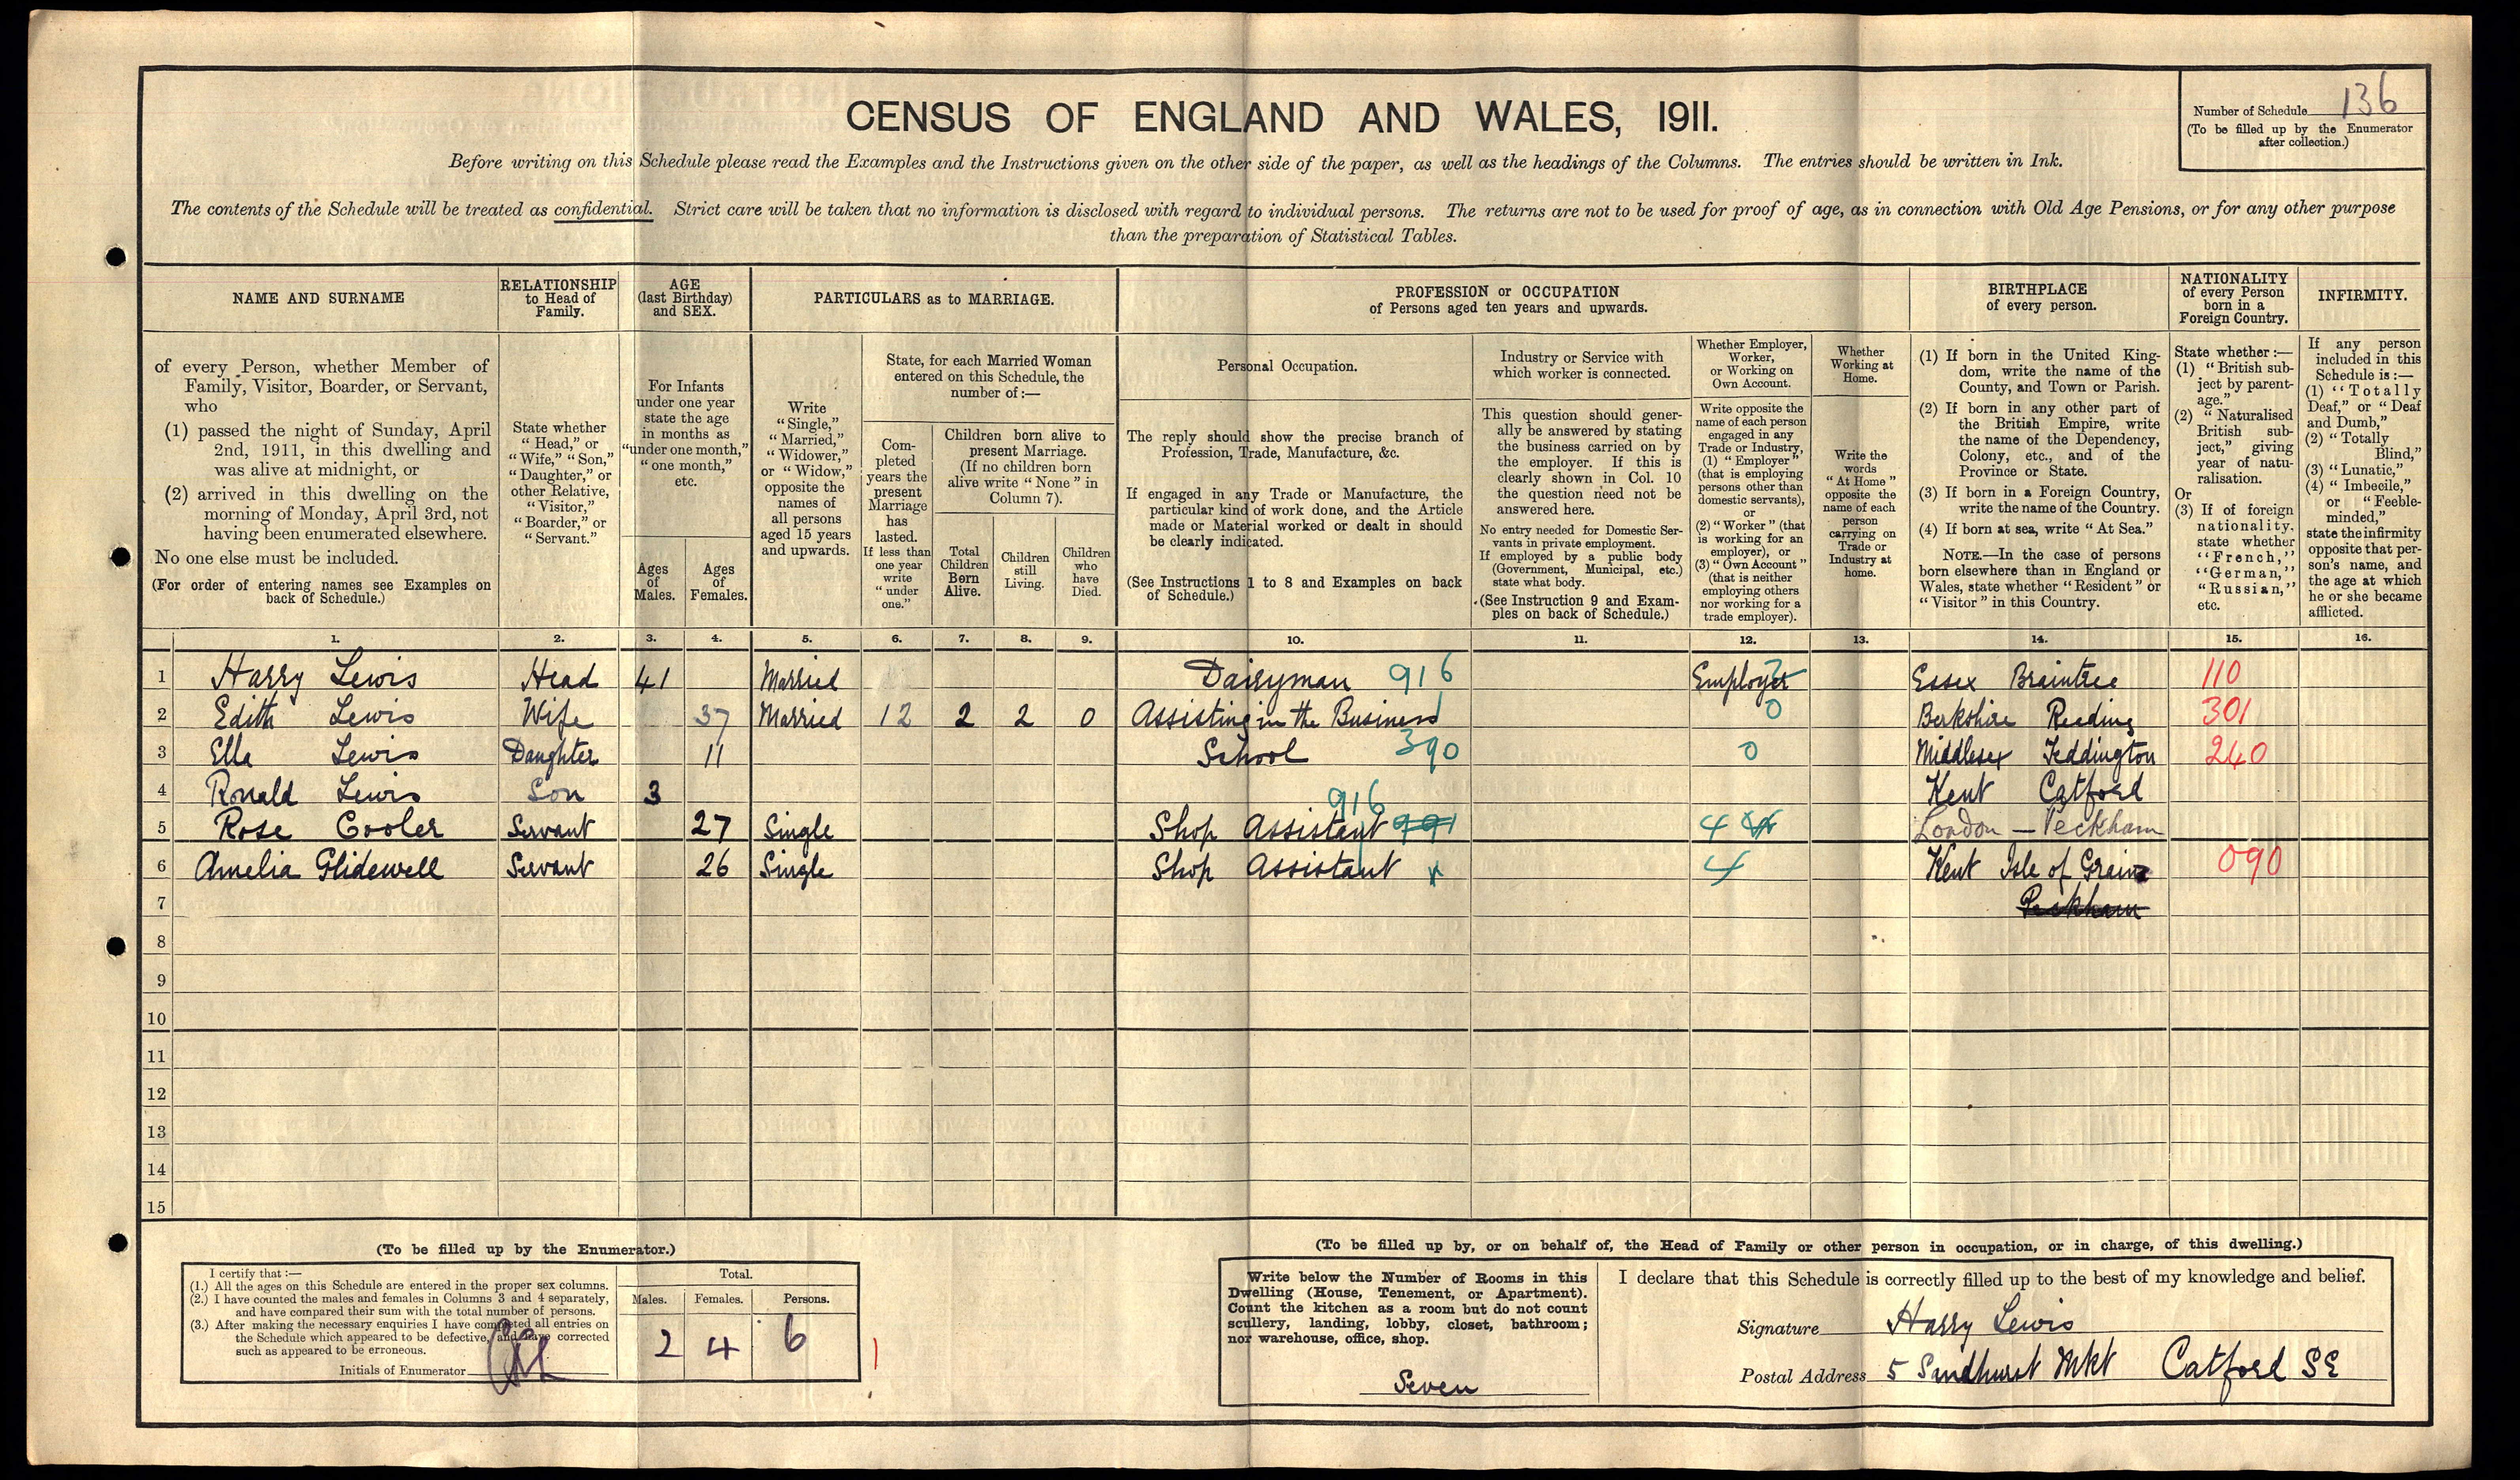 CENSUS OF ENGLAND AND WALES, 1911.
Number of Schedule 136
(To be filled up by the Enumerator
after collection.)
Before writing on this Schedule please read the Examples and the Instructions given on the other side of the paper, as well as the headings of the Columns. The entries should be written in Ink.
The contents of the Schedule will be treated as confidential. Strict care will be taken that no information is disclosed with regard to individual persons. The returns are not to be used for proof of age, as in connection with Old Age Pensions, or for any other purpose
than the preparation of Statistical Tables.
NAME AND SURNAME
of every Person, whether Member of
Family, Visitor, Boarder, or Servant,
who
(1) passed the night of Sunday, April
2nd, 1911, in this dwelling and
was alive at midnight, or
(2) arrived in this dwelling on the
morning of Monday, April 3rd, not
having been enumerated elsewhere.
No one else must be included.
(For order of entering names see Examples on
back of Schedule.)
RELATIONSHIP
to Head of
Family.
State whether
"Head," or
"Wife," "Son,"
"Daughter," or
other Relative,
"Visitor,"
"Boarder," or
"Servant."
AGE
(last Birthday)
and SEX.
For Infants
under one year
state the age
in months as
"under one month,"
"one month,"
etc.
Ages
of
Males.
Ages
of
Females.
PARTICULARS as to MARRIAGE.
Write
"Single,"
"Married,"
"Widower,"
or "Widow,"
opposite the
names of
all persons
aged 15 years
and upwards.
State, for each Married Woman
entered on this Schedule, the
number of :—
Com-
pleted
years the
present
Marriage
has
lasted.
If less than
one year
write
"under
one."
Children born alive to
present Marriage.
(If no children born
alive write "None" in
Column 7).
Total
Children
Born
Alive.
Children
still
Living.
Children
who
have
Died.
PROFESSION or OCCUPATION
of Persons aged ten years and upwards.
Personal Occupation.
The reply should show the precise branch of
Profession, Trade, Manufacture, &c.
If engaged in any Trade or Manufacture, the
particular kind of work done, and the Article
made or Material worked or dealt in should
be clearly indicated.
(See Instructions 1 to 8 and Examples on back
of Schedule.)
Industry or Service with
which worker is connected.
This question should gener-
ally be answered by stating
the business carried on by
the employer. If this is
clearly shown in Col. 10
the question need not be
answered here.
No entry needed for Domestic Ser-
vants in private employment.
If employed by a public body
(Government, Municipal, etc.)
state what body.
(See Instruction 9 and Exam-
ples on back of Schedule.)
Whether Employer,
Worker,
or Working on
Own Account.
Write opposite the
name of each person
engaged in any
Trade or Industry,
(1) "Employer"
(that is employing
persons other than
domestic servants),
or
(2) "Worker" (that
is working for an
employer), or
(3) "Own Account"
(that is neither
employing others
nor working for a
trade employer).
Whether
Working at
Home.
Write the
words
"At Home"
opposite the
name of each
person
carrying on
Trade or
Industry at
home.
BIRTHPLACE
of every person.
(1) If born in the United King-
dom, write the name of the
County, and Town or Parish.
(2) If born in any other part of
the British Empire, write
the name of the Dependency,
Colony, etc., and of the
Province or State.
(3) If born in a Foreign Country,
write the name of the Country.
(4) If born at sea, write "At Sea."
NOTE.—In the case of persons
born elsewhere than in England or
Wales, state whether "Resident" or
"Visitor" in this Country.
NATIONALITY
of every Person
born in a
Foreign Country.
State whether :—
(1) "British sub-
ject by parent-
age."
(2) "Naturalised
British sub-
ject," giving
year of natu-
ralisation.
Or
(3) If of foreign
nationality,
state whether
"French,"
"German,"
"Russian,"
etc.
INFIRMITY.
If any person
included in this
Schedule is :—
(1) "Totally
Deaf," or "Deaf
and Dumb,"
(2) "Totally
Blind,"
(3) "Lunatic,"
(4) "Imbecile,"
or "Feeble-
minded,"
state the infirmity
opposite that per-
son's name, and
the age at which
he or she became
afflicted.
1. 2. 3. 4. 5. 6. 7. 8. 9. 10. 11. 12. 13. 14. 15. 16.
1 Harry Lewis Head 41 Married Dairyman 916 Employer Essex Braintree 110
2 Edith Lewis Wife 37 Married 12 2 2 0 Assisting in the Business 1 0 Berkshire Reading 301
3 Ella Lewis Daughter 11 School 390 0 Middlesex Teddington 240
4 Ronald Lewis Son 3 Kent Catford
5 Rose Cooler Servant 27 Single Shop Assistant 916 991 4 London – Peckham
6 Amelia Glidewell Servant 26 Single Shop Assistant x 4 Kent Isle of Grain 090
7 Peckham
8
9
10
11
12
13
14
15
(To be filled up by the Enumerator.)
I certify that :—
(1.) All the ages on this Schedule are entered in the proper sex columns.
(2.) I have counted the males and females in Columns 3 and 4 separately,
and have compared their sum with the total number of persons.
(3.) After making the necessary enquiries I have completed all entries on
the Schedule which appeared to be defective, and have corrected
such as appeared to be erroneous.
Initials of Enumerator
Total.
Males. Females. Persons.
2 4 6
(To be filled up by, or on behalf of, the Head of Family or other person in occupation, or in charge, of this dwelling.)
Write below the Number of Rooms in this
Dwelling (House, Tenement, or Apartment).
Count the kitchen as a room but do not count
scullery, landing, lobby, closet, bathroom;
nor warehouse, office, shop.
Seven
I declare that this Schedule is correctly filled up to the best of my knowledge and belief.
Signature Harry Lewis
Postal Address 5 Sandhurst Mkt Catford SE